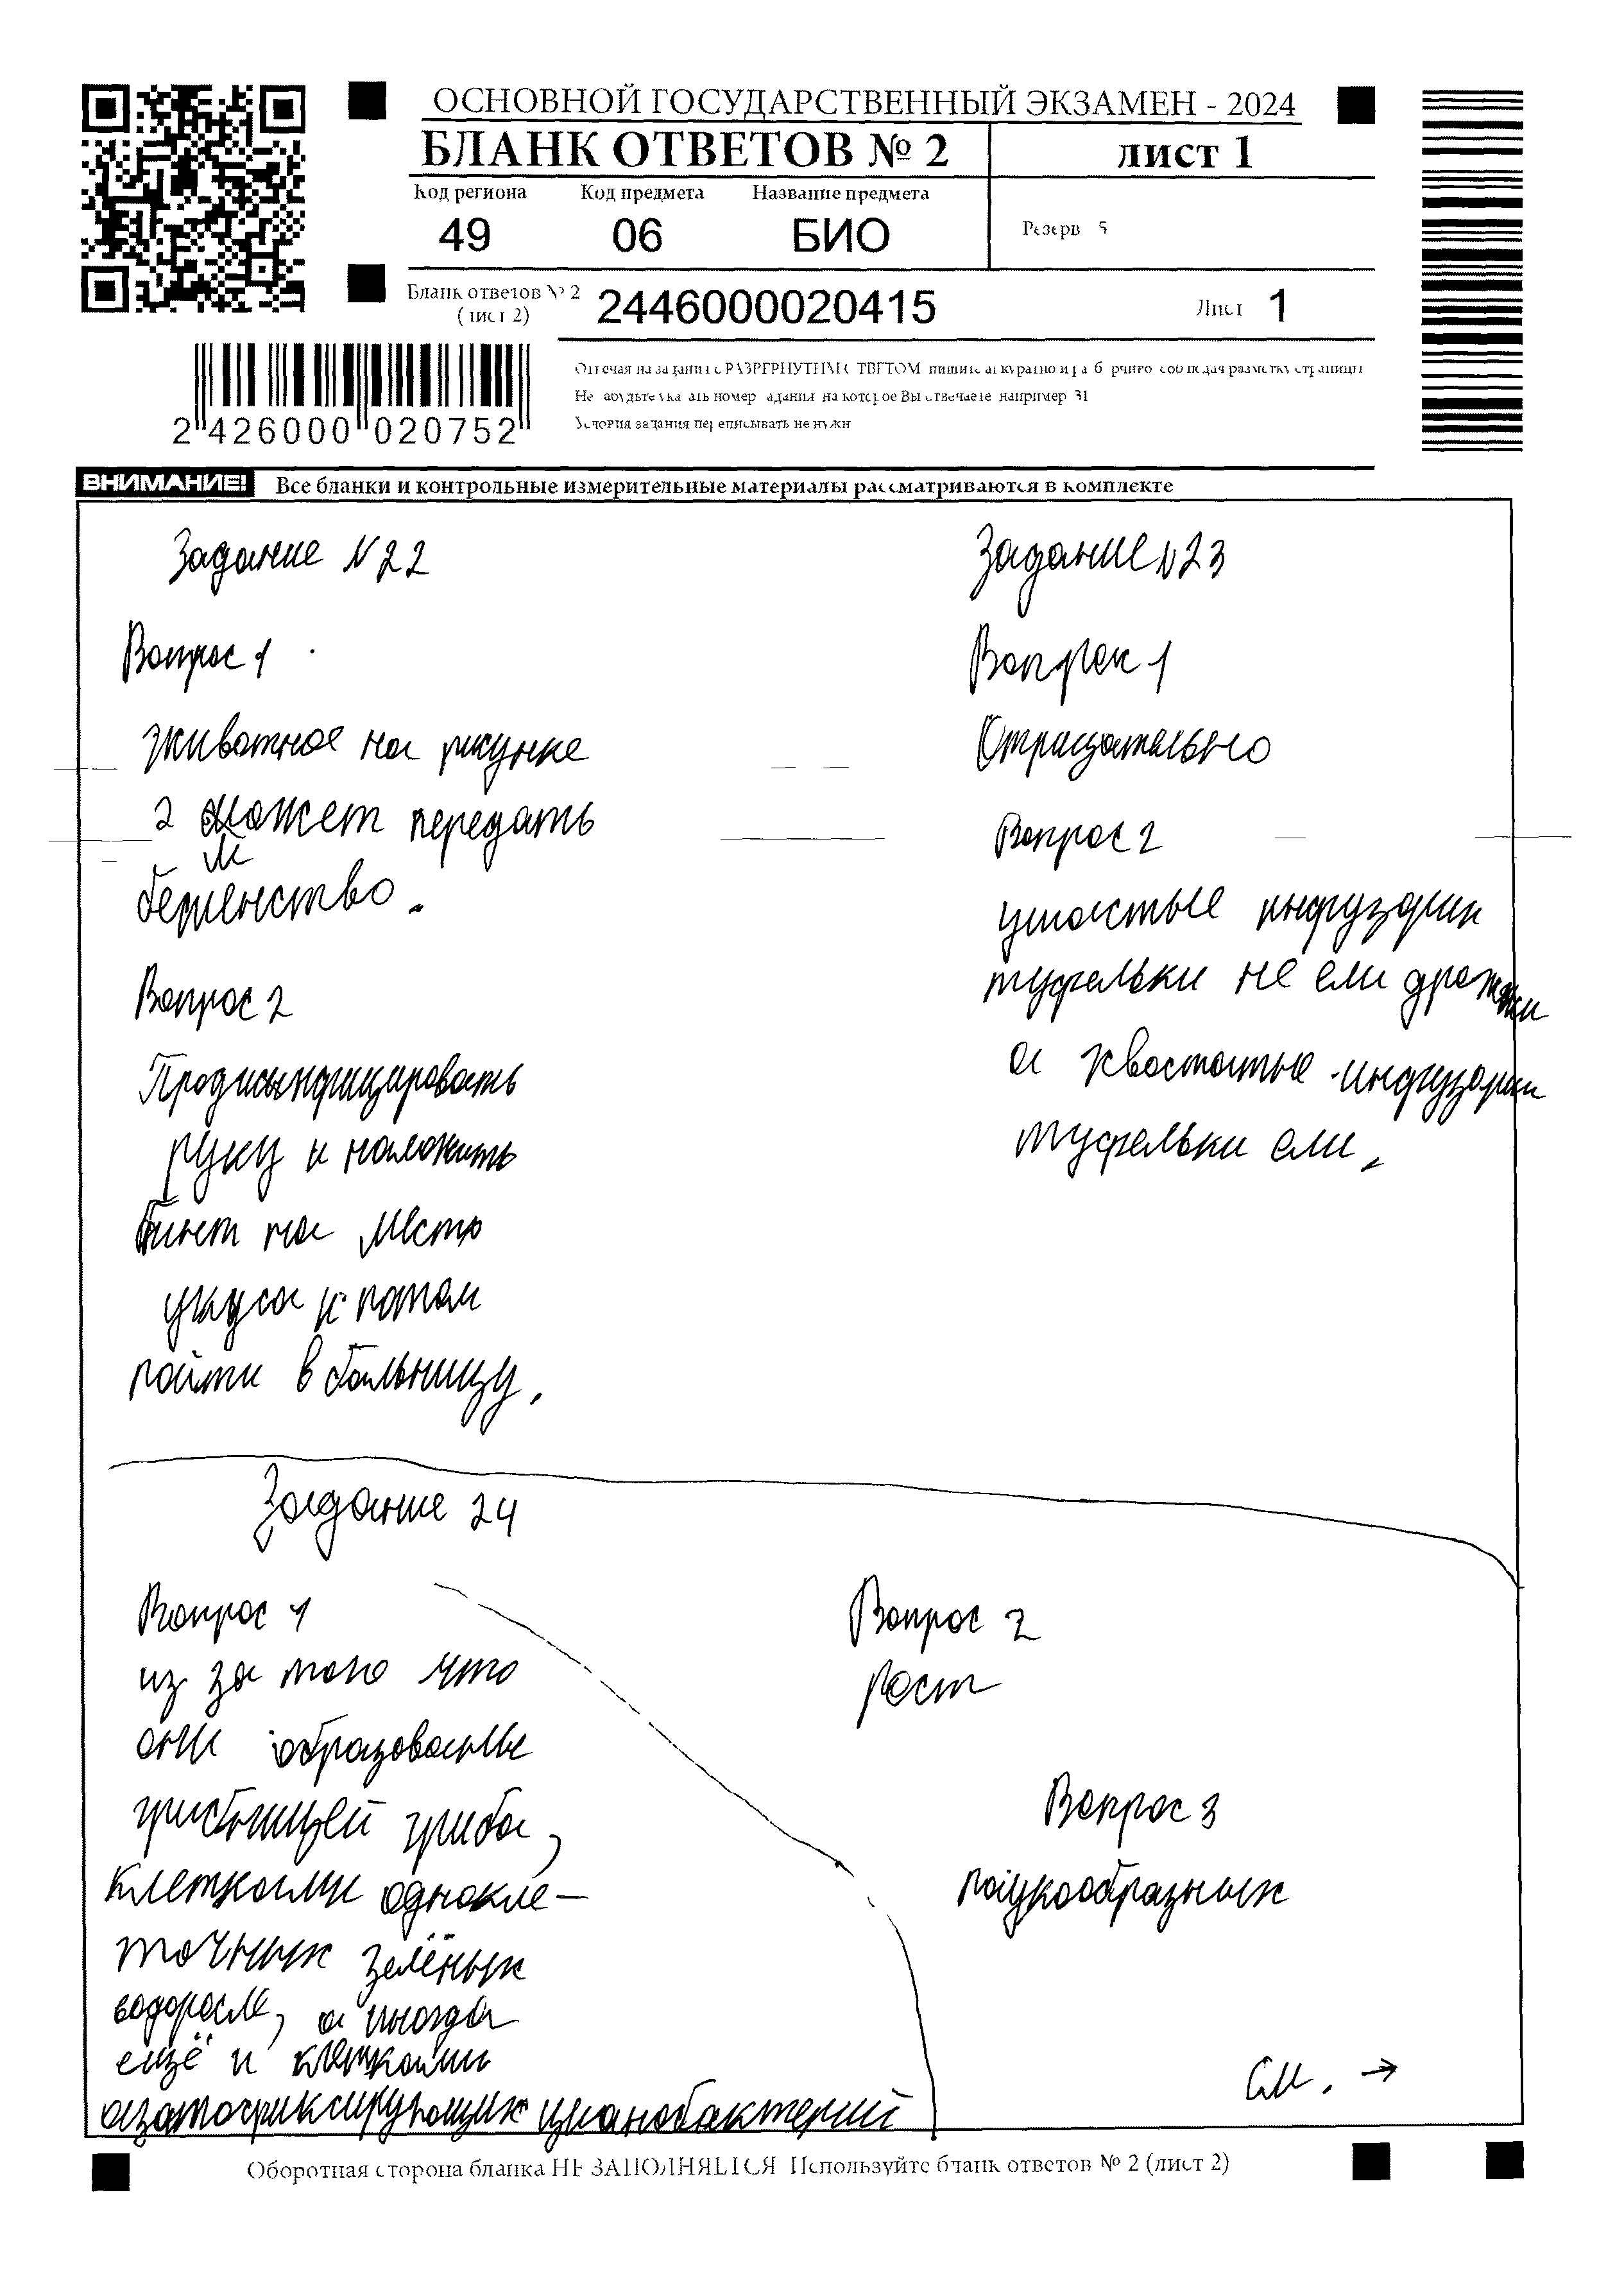 ОСНОВНОЙ ГОСУДАРСТВЕННЫЙ ЭКЗАМЕН - 2024
БЛАНК ОТВЕТОВ № 2
лист 1
Код региона Код предмета Название предмета
49 06 БИО
Резерв 5
Бланк ответов № 2
(лист 2)
2446000020415
Лист 1
2 426000 020752
Отвечая на задания с РАЗВЕРНУТЫМ ОТВЕТОМ пишите аккуратно и разборчиво соблюдая разметку страницы
Не забудьте указать номер задания на которое Вы отвечаете например 31
Условия задания переписывать не нужно
ВНИМАНИЕ! Все бланки и контрольные измерительные материалы рассматриваются в комплекте
Задание N22
Вопрос 1
животное на рисунке
2 может передать
бешенство.
Вопрос 2
Продисындицировать
руку и наложить
бинт на место
укуса и потом
пойти в больницу.
Задание N23
Вопрос 1
Отрицательно
Вопрос 2
ушастые инфузории
туфельки не ели дрожжи
а хвостатые инфузории
туфельки ели.
Задание 24
Вопрос 1
из за того что
они образованые
грибницей гриба,
клетками однокле-
точных зелёных
водорасле, а иногда
ещё и клетками
азатофиксирующих цианобактерий
Вопрос 2
рост
Вопрос 3
паукообразных
см. →
Оборотная сторона бланка НЕ ЗАПОЛНЯЕТСЯ Используйте бланк ответов № 2 (лист 2)